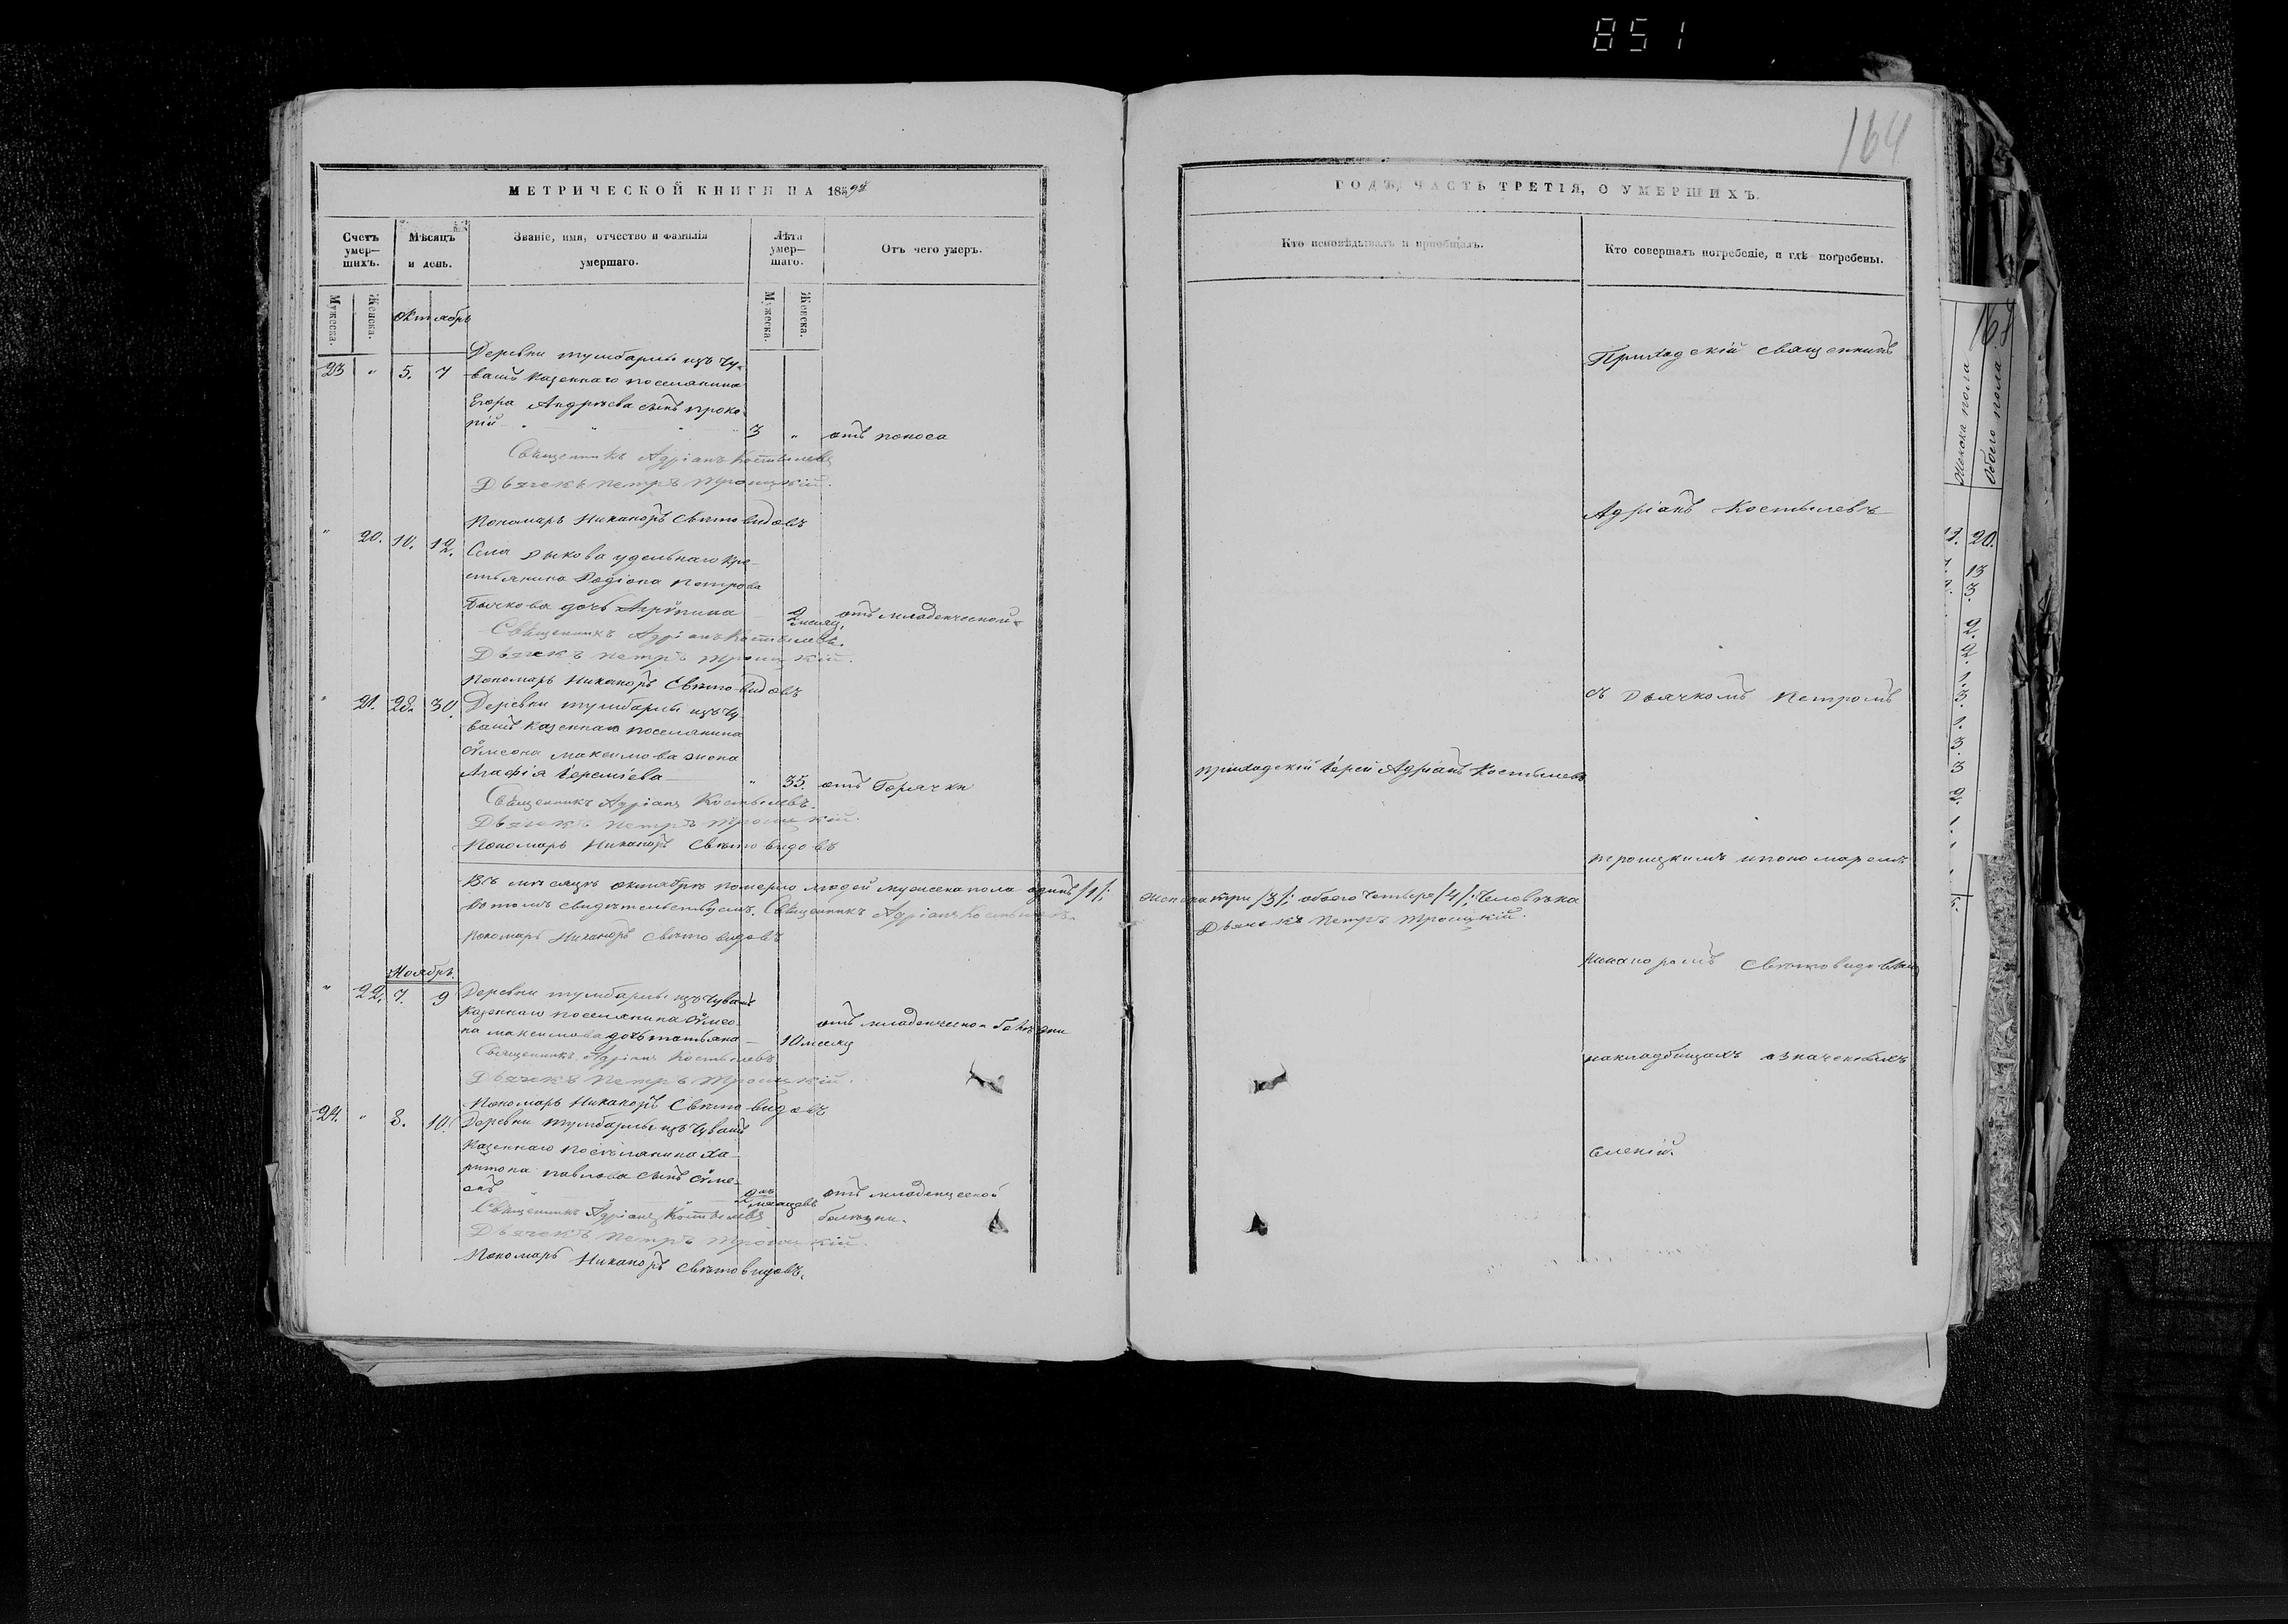 851
164
МЕТРИЧЕСКОЙ КНИГИ НА 1859й
ГОДЪ, ЧАСТЬ ТРЕТІЯ, О УМЕРШИХЪ.
Счетъ умер—шихъ.
Мѣсяцъ и день.
Званіе, имя, отчество и фамилія умершаго.
Лѣта умер—шаго.
Отъ чего умеръ.
Кто исповѣдывалъ и пріобщалъ.
Кто совершалъ погребеніе, и гдѣ погребены.
Мужеска.
Женска.
Мужеска.
Женска.
Октябрь
23 " 5. 7
Деревни тумбарлы изъ чу-
вашъ казеннаго поселянина
Егора Андрѣева сынъ проко-
пій
3 " отъ поноса
Священникъ Адріанъ Костылевъ
Дьячекъ Петръ Троицкій.
Пономарь Никаноръ Свѣтовидовъ
" 20. 10. 12.
Села Дыкова удельнаго кре-
стьянина Родіона Петрова
Бычкова дочь Агрипина
2 месяц. отъ младенческой
Священникъ Адріанъ Костылевъ.
Дьячекъ Петръ Троицкій.
Пономарь Никаноръ Свѣтовидовъ
" 21. 28. 30.
Деревни тумбарлы изъ чу
вашъ казеннаго поселянина
Сѵмеона Максимова жена
Агафія Іереміева
" 35. отъ Горячки
Священникъ Адріанъ Костылевъ.
Дьячекъ Петръ Троицкій.
Пономарь Никаноръ Свѣтовидовъ
приходскій Іерей Адріанъ Костылевъ
Въ мѣсяцѣ октябрѣ померло людей мужеска пола одинъ /1/; женска три /3/; обоего четыре /4/; человѣка
въ томъ свидѣтельствуемъ. Священникъ Адріанъ Костылевъ.
Дьячекъ Петръ Троицкій.
Пономарь Никаноръ Свѣтовидовъ
Ноябрь
" 22. 7. 9
Деревни тумбарлы изъ чувашъ
казеннаго поселянина Сѵмео-
на Максимова дочь татьяна
10 месяц
отъ младенческой болѣзни
Священникъ Адріанъ Костылевъ
Дьячекъ Петръ Троицкій.
Пономарь Никаноръ Свѣтовидовъ
24. " 8. 10.
Деревни тумбарлы изъ чувашъ
казеннаго поселянина Ха-
ритона павлова сынъ Сѵме-
онъ
2 месяцевъ
отъ младенческой
болезни.
Священникъ Адріанъ Костылевъ
Дьячекъ Петръ Троицкій.
Пономарь Никаноръ Свѣтовидовъ.
Приходскій священникъ
Адріанъ Костылевъ
съ Дьячкомъ Петромъ
троицкимъ и пономаремъ
Никаноромъ Свѣтовидовымъ
на кладбищахъ означенныхъ
селеній.
167
Женска пола
Обоего пола
20.
13
3.
2.
2.
1.
3.
1.
3.
3
2.
1.
1